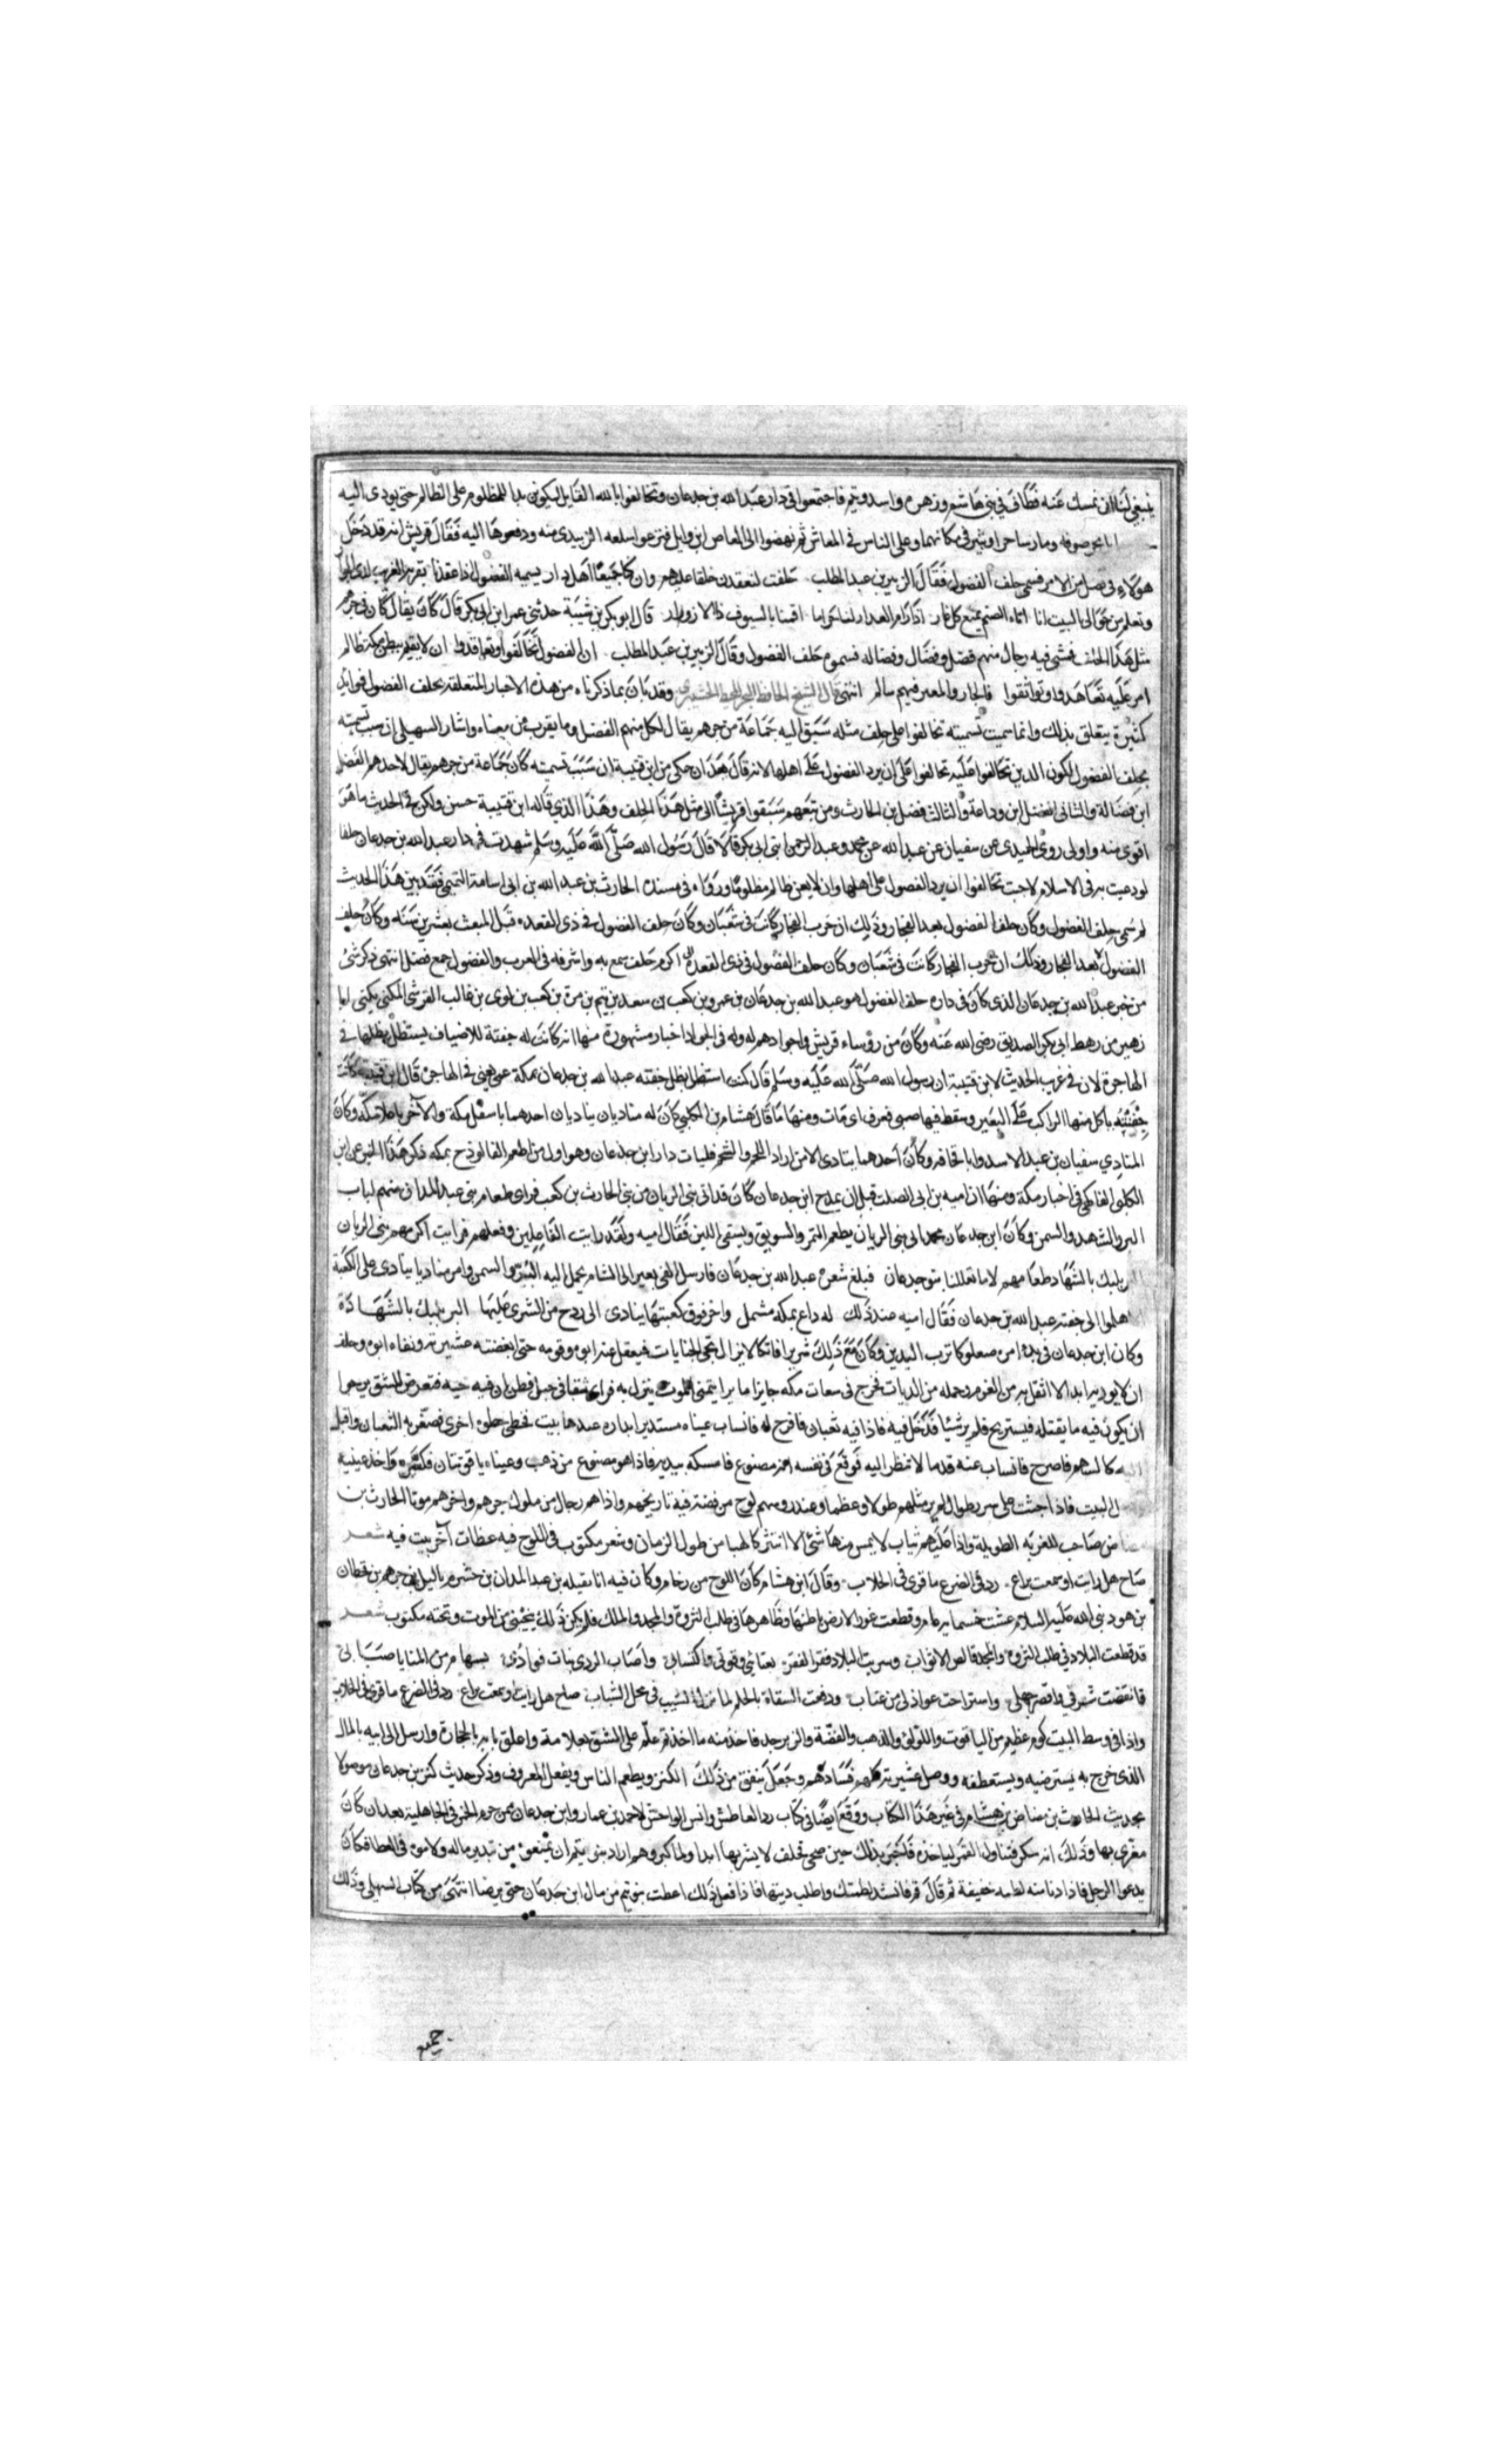 ينبغي لنا ان نمسك عنه فطاف في بني هاشم وزهره واسد وتيم فاجتمعوا في دار عبد الله بن جدعان وتحالفوا بالله القايل ليكونن يدا للمظلوم على الظالم حتى يودى اليه
ما بحر صوفه وما رسا حرا وثبير في مكانهما وعلى الناس في المعاش ثم نهضوا الى العاص ابن وايل فنزعوا سلعه الزبيدي منه ودفعوها اليه فقال قريش انه قد دخل
هولاء في فضل من الامر فسمي حلف الفضول فقال الزبير بن عبد المطلب حلفت لنعقدن حلفا عليهم وان كنا جميعا اهل دار نسميه الفضول اذا عقدنا يعز به الغريب لدى الجوار
ويعلم من حوالى البيت انا اباه الضيم نمنع كل عار قال ابو بكر بن شيبة حدثني عمر ابن ابي بكر قال كان يقال كان في جرهم
مثل هذا الحلف فمشى فيه رجال منهم فضل وفضال وفضاله فسموه حلف الفضول وقال الزبير بن عبد المطلب ان الفضول تحالفوا وتعاقدوا ان لا يقيم ببطن مكه ظالم
امر عليه تعاهدوا وتواثقوا فالجار والمعتر فيهم سالم انتهى قال الشيخ الحافظ وقد بان بما ذكرناه من هذه الاخبار المتعلقة بحلف الفضول فوايد
كثيرة يتعلق بذلك وانما سميت تسميته تحالفوا على حلف مثله سبق اليه جماعة من جرهم يقال لكل منهم الفضل وما يقرب من معناه واشار السهيلي الى سبب تسميته
بحلف الفضول لكون الذين تحالفوا عليه تحالفوا على ان يرد الفضول على اهلها لانه قال بعد ان حكى من ابن قتيبة ان سبب تسميته كان جماعة من جرهم يقال لاحدهم الفضل
ابن فضالة والثاني الفضل ابن وداعة والثالث فضل بن الحارث ومن تبعهم سبقوا قريشا الى مثل هذا الحلف وهذا الذي قاله ابن قتيبة حسن ولكن في الحديث ما هو
اقوى منه واولى روى الحميدي عن سفيان عن عبد الله عن محمد وعبد الرحمن ابني ابي بكر قالا قال رسول الله صلى الله عليه وسلم شهدت في دار عبد الله بن جدعان حلفا
لو دعيت به في الاسلام لاجبت تحالفوا ان يرد الفضول على اهلها وان لا يعز ظالم مظلوما ورواه في مسنده الحارث بن عبد الله بن ابي اسامة التميمي فقد بين هذا الحديث
لم سمي حلف الفضول وكان حلف الفضول بعد الفجار وذلك ان حرب الفجار كانت في شعبان وكان حلف الفضول في ذي القعده قبل المبعث بعشرين سنه وكان حلف
الفضول بعد الفجار وذلك ان حرب الفجار كانت في شعبان وكان حلف الفضول في ذي القعده اكرم حلف سمع به واشرفه في العرب والفضول جمع فضل انتهى ذكر شئ
من خبر عبد الله بن جدعان الذي كان في داره حلف الفضول هو عبد الله بن جدعان بن عمرو بن كعب بن سعد بن تيم بن مرة بن كعب بن لوي بن غالب القرشي المكي يكنى ابا
زهير من رهط ابي بكر الصديق رضي الله عنه وكان من رؤساء قريش واجوادهم له وله في الجود اخبار مشهورة منها انه كانت له جفنة للاضياف يستظل بظلها في
الهاجرة لان في غريب الحديث لابن قتيبة ان رسول الله صلى الله عليه وسلم قال كنت استظل بظل جفنه عبد الله بن جدعان بمكة عمي يعني في الهاجره قال ابن قتيبة كانت
جفنته ياكل منها الراكب على البعير وسقط فيها صبي فغرق اي مات ومنها ما قال هشام بن الكلبي كان له مناديان يناديان احدهما باسفل مكة والآخر باعلا مكة وكان
المنادي سفيان بن عبد الاسد وابا قحافه وكان احدهما ينادي الا من اراد اللحم والشحم فليات دار ابن جدعان وهو اول من اطعم الفالوذج بمكه ذكر هذا الخبر عن ابن
الكلبي الفاكهي في اخبار مكة ومنها ان اميه بن ابي الصلت قبل ان يمدح ابن جدعان كان قد اتى بني الريان من بني الحارث بن كعب فراى طعام بني عبد المدان منهم لباب
البر والشهد والسمن وكان ابن جدعان يطعم التمر والسويق ويسقي اللبن فقال اميه ولقد رايت الفاعلين وفعلهم فرايت اكرمهم بني الريان
البر يلبك بالشهاد طعامهم لا ما تعللنا بنو جدعان فبلغ شعره عبد الله بن جدعان فارسل الفي بعير الى الشام يحمل اليه البر والسمن وامر مناديا ينادي على الكعبة
هلموا الى جفنه عبد الله بن جدعان فقال اميه عند ذلك له داع بمكه مشمعل واخر فوق كعبتها ينادي الى ردح من الشيزى عليها البر يلبك بالشهادة
وكان ابن جدعان في بدء امره صعلوكا ترب اليدين وكان مع ذلك شريرا فاتكا لا يزال يجني الجنايات فيعقل عنه ابوه وقومه حتى ابغضته عشيرته ونفاه ابوه وحلف
ان لا يوويه ابدا لما اثقل به من الغرم وحمله من الديات فخرج في شعاب مكه حايرا يتمنى الموت ينزل به فراى شقا في جبل فظن ان فيه حيه فتعرض للشق يرجوا
ان يكون فيه ما يقتله فيستريح فلم ير شيئا فدخل فيه فاذا فيه ثعبان فافرج له فانساب عيناه مستديرا بداره عندها بيت فخطى خطوه اخرى فصفر به الثعبان واقبل
اليه كالسهم فافرج فانساب عنه قدما لا ينظر اليه فوقع في نفسه انه مصنوع فامسكه بيديه فاذا هو مصنوع من ذهب وعيناه ياقوتتان فكسره واخذ عينيه
الى البيت فاذا جثث على سرر طوال لم ير مثلهم طولا وعظما وعند رؤسهم لوح من فضة فيه تاريخهم واذا هم رجال من ملوك جرهم واخرهم موتا الحارث بن
مضاض صاحب الغربه الطويلة واذا عليهم ثياب لا يمس منها شئ الا انتثر كالهبا من طول الزمان وشعر مكتوب في اللوح فيه عظات آخر بيت فيه شعر
صاح هل رايت او سمعت براع رد في الضرع ما قرى في الحلاب وقال ابن هشام كان اللوح من رخام وكان فيه انا نفيله بن عبد المدان بن خشرم بن جرهم بن قحطان
بن هود نبي الله عليه السلام عشت خمسمايه عام وقطعت غور الارض باطنها وظاهرها في طلب الثروة والمجد والملك فلم يكن ذلك ينجيني من الموت وتحته مكتوب شعر
قد قطعت البلاد في طلب الثروه والمجد قالص الاثواب وسريت البلاد قفرا لقفر واكتساب واصاب الردى بنات فوادي بسهام من المنايا صياب
فانقضت شرتي واقصر جهلي واستراحت عواذلي من عتاب ودفعت السفاه بالحلم لما نزل الشيب في محل الشباب صاح هل رايت او سمعت براع رد في الضرع ما قرى في الحلاب
واذا في وسط البيت كوم عظيم من الياقوت واللؤلؤ والذهب والفضة والزبرجد فاخذ منه ما اخذ ثم علم على الشق بعلامة واغلق بابه بالحجارة وارسل الى ابيه بالمال
الذي خرج به يسترضيه ويستعطفه ووصل عشيرته كلهم فسادهم وجعل ينفق من ذلك الكنز ويطعم الناس ويفعل المعروف وذكر حديث كنز بن جدعان موصولا
بحديث الحارث بن مضاض بن هشام في غير هذا الكتاب ووقع ايضا في كتاب رى العاطش وانس الواحش لاحمد بن عمار وابن جدعان ممن حرم الخمر في الجاهلية بعد ان كان
مغرى بها وذلك انه سكر فتناول القمر لياخذه فاخبر بذلك حين صحى فحلف لا يشربها ابدا ولما كبر وهرم اراد بنو تيم ان يمنعوه من تبديد ماله ولاموه في العطا فكان
يدعوا الرجل فاذا دنا منه لطمه خفيفة ثم قال قم فانشد لطمتك واطلب ديتها فاذا فعل ذلك اعطت بنو تيم من مال ابن جدعان حتى يرضا انتهى من كتاب السهيلي وذلك
جميع